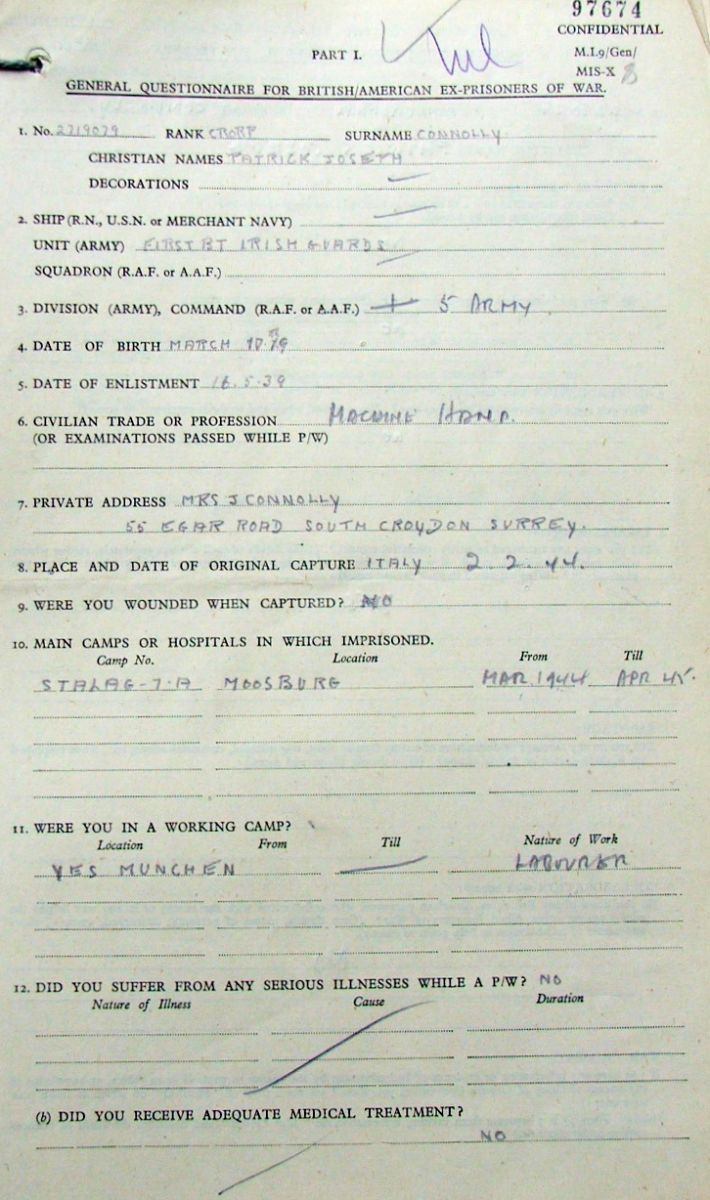 97674
CONFIDENTIAL
PART I.
M.I.9/Gen/
MIS-X 8
GENERAL QUESTIONNAIRE FOR BRITISH/AMERICAN EX-PRISONERS OF WAR.
1. No. 2719079 RANK SURNAME CONNOLLY
CHRISTIAN NAMES PATRICK JOSEPH
DECORATIONS
2. SHIP (R.N., U.S.N. or MERCHANT NAVY)
UNIT (ARMY) FIRST BT IRISH GUARDS
SQUADRON (R.A.F. or A.A.F.)
3. DIVISION (ARMY), COMMAND (R.A.F. or A.A.F.) 5 ARMY
4. DATE OF BIRTH MARCH
5. DATE OF ENLISTMENT 16.5.39
6. CIVILIAN TRADE OR PROFESSION MACHINE HAND.
(OR EXAMINATIONS PASSED WHILE P/W)
7. PRIVATE ADDRESS MRS J CONNOLLY
55 EGAR ROAD SOUTH CROYDON SURREY.
8. PLACE AND DATE OF ORIGINAL CAPTURE ITALY 2.2.44.
9. WERE YOU WOUNDED WHEN CAPTURED? NO
10. MAIN CAMPS OR HOSPITALS IN WHICH IMPRISONED.
Camp No. Location From Till
STALAG-7-A MOOSBURG MAR.1944 APR 45.
11. WERE YOU IN A WORKING CAMP?
Location From Till Nature of Work
YES MUNCHEN LABOURER
12. DID YOU SUFFER FROM ANY SERIOUS ILLNESSES WHILE A P/W? NO
Nature of Illness Cause Duration
(b) DID YOU RECEIVE ADEQUATE MEDICAL TREATMENT?
NO